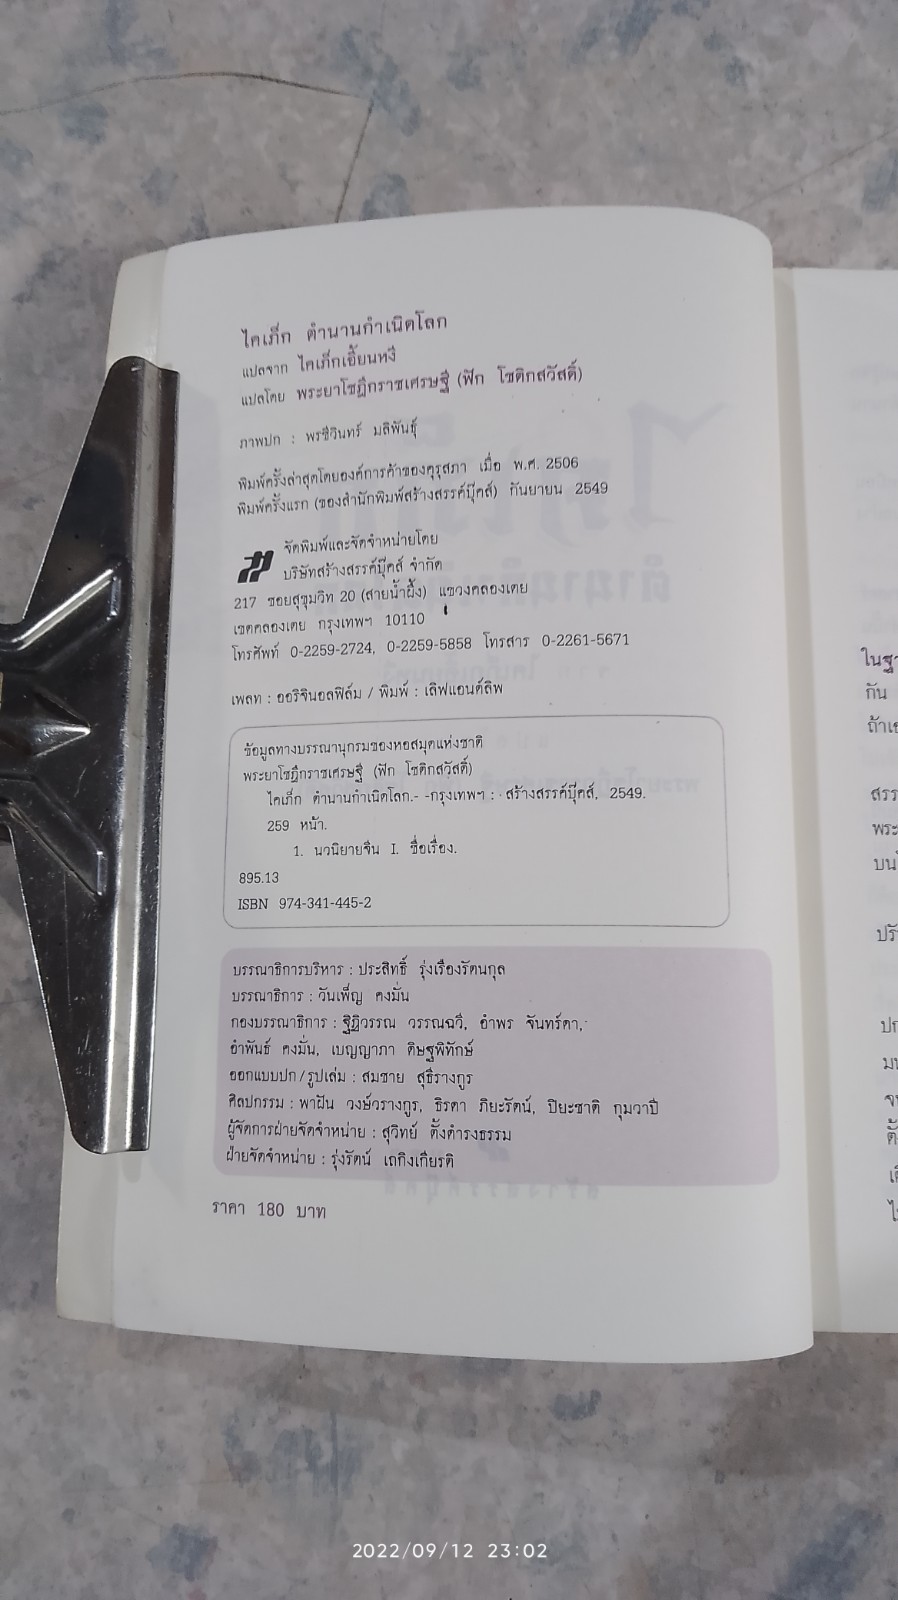 ไคเภ็ก ตำนานกำเนิดโลก
แปลจาก ไคเภ็กเอี้ยนหงี
แปลโดย พระยาโชฎึกราชเศรษฐี (ฟัก โชติกสวัสดิ์)
ภาพปก : พรชีวินทร์ มลิพันธุ์
พิมพ์ครั้งล่าสุดโดยองค์การค้าของคุรุสภา เมื่อ พ.ศ. 2506
พิมพ์ครั้งแรก (ของสำนักพิมพ์สร้างสรรค์บุ๊คส์) กันยายน 2549
จัดพิมพ์และจัดจำหน่ายโดย
บริษัทสร้างสรรค์บุ๊คส์ จำกัด
217 ซอยสุขุมวิท 20 (สายน้ำผึ้ง) แขวงคลองเตย
เขตคลองเตย กรุงเทพฯ 10110
โทรศัพท์ 0-2259-2724, 0-2259-5858 โทรสาร 0-2261-5671
เพลท : ออริจินอลฟิล์ม / พิมพ์ : เลิฟแอนด์ลิพ
ข้อมูลทางบรรณานุกรมของหอสมุดแห่งชาติ
พระยาโชฎึกราชเศรษฐี (ฟัก โชติกสวัสดิ์)
ไคเภ็ก ตำนานกำเนิดโลก.- -กรุงเทพฯ : สร้างสรรค์บุ๊คส์, 2549.
259 หน้า.
1. นวนิยายจีน I. ชื่อเรื่อง.
895.13
ISBN 974-341-445-2
บรรณาธิการบริหาร : ประสิทธิ์ รุ่งเรืองรัตนกุล
บรรณาธิการ : วันเพ็ญ คงมั่น
กองบรรณาธิการ : ฐิฏิวรรณ วรรณฉวี, อำพร จันทร์ดา,
อำพันธ์ คงมั่น, เบญญาภา ดิษฐพิทักษ์
ออกแบบปก/รูปเล่ม : สมชาย สุธีรางกูร
ศิลปกรรม : พาฝัน วงษ์วรางกูร, ธิรดา ภิยะรัตน์, ปิยะชาติ กุมวาปี
ผู้จัดการฝ่ายจัดจำหน่าย : สุวิทย์ ตั้งดำรงธรรม
ฝ่ายจัดจำหน่าย : รุ่งรัตน์ เถกิงเกียรติ
ราคา 180 บาท
กัน
2022/09/12 23:02